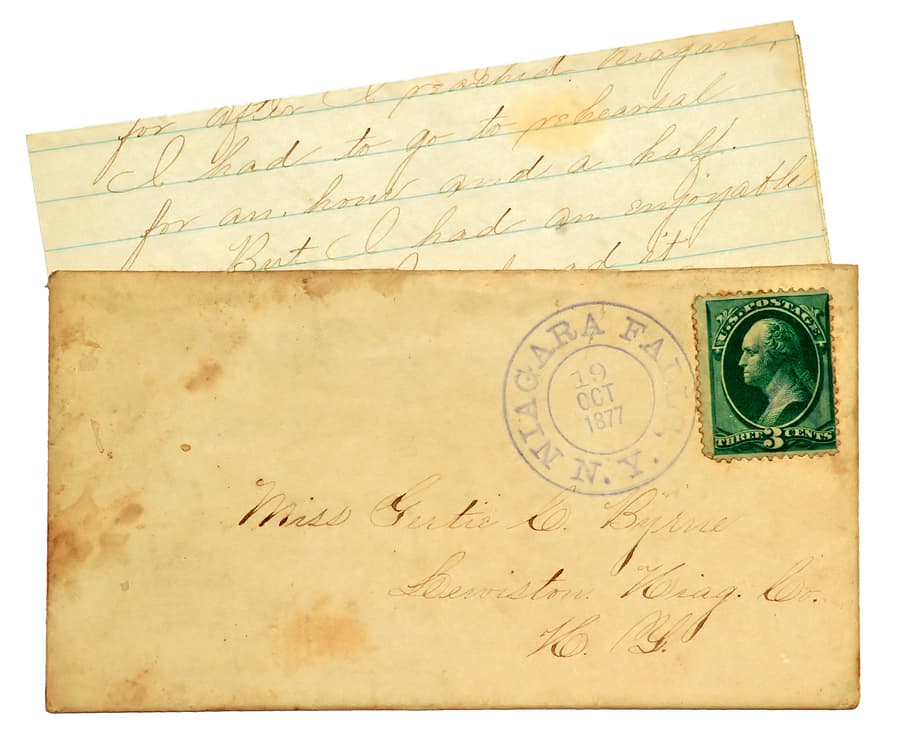 for after I reached Niagara,
I had to go to rehearsal
for an hour and a half.
But I had an enjoyable
had it
NIAGARA FALLS. N.Y.
19
OCT
1877
U.S. POSTAGE
THREE 3 CENTS
Miss Gertie C. Byrne
Lewiston Niag. Co.
N. Y.